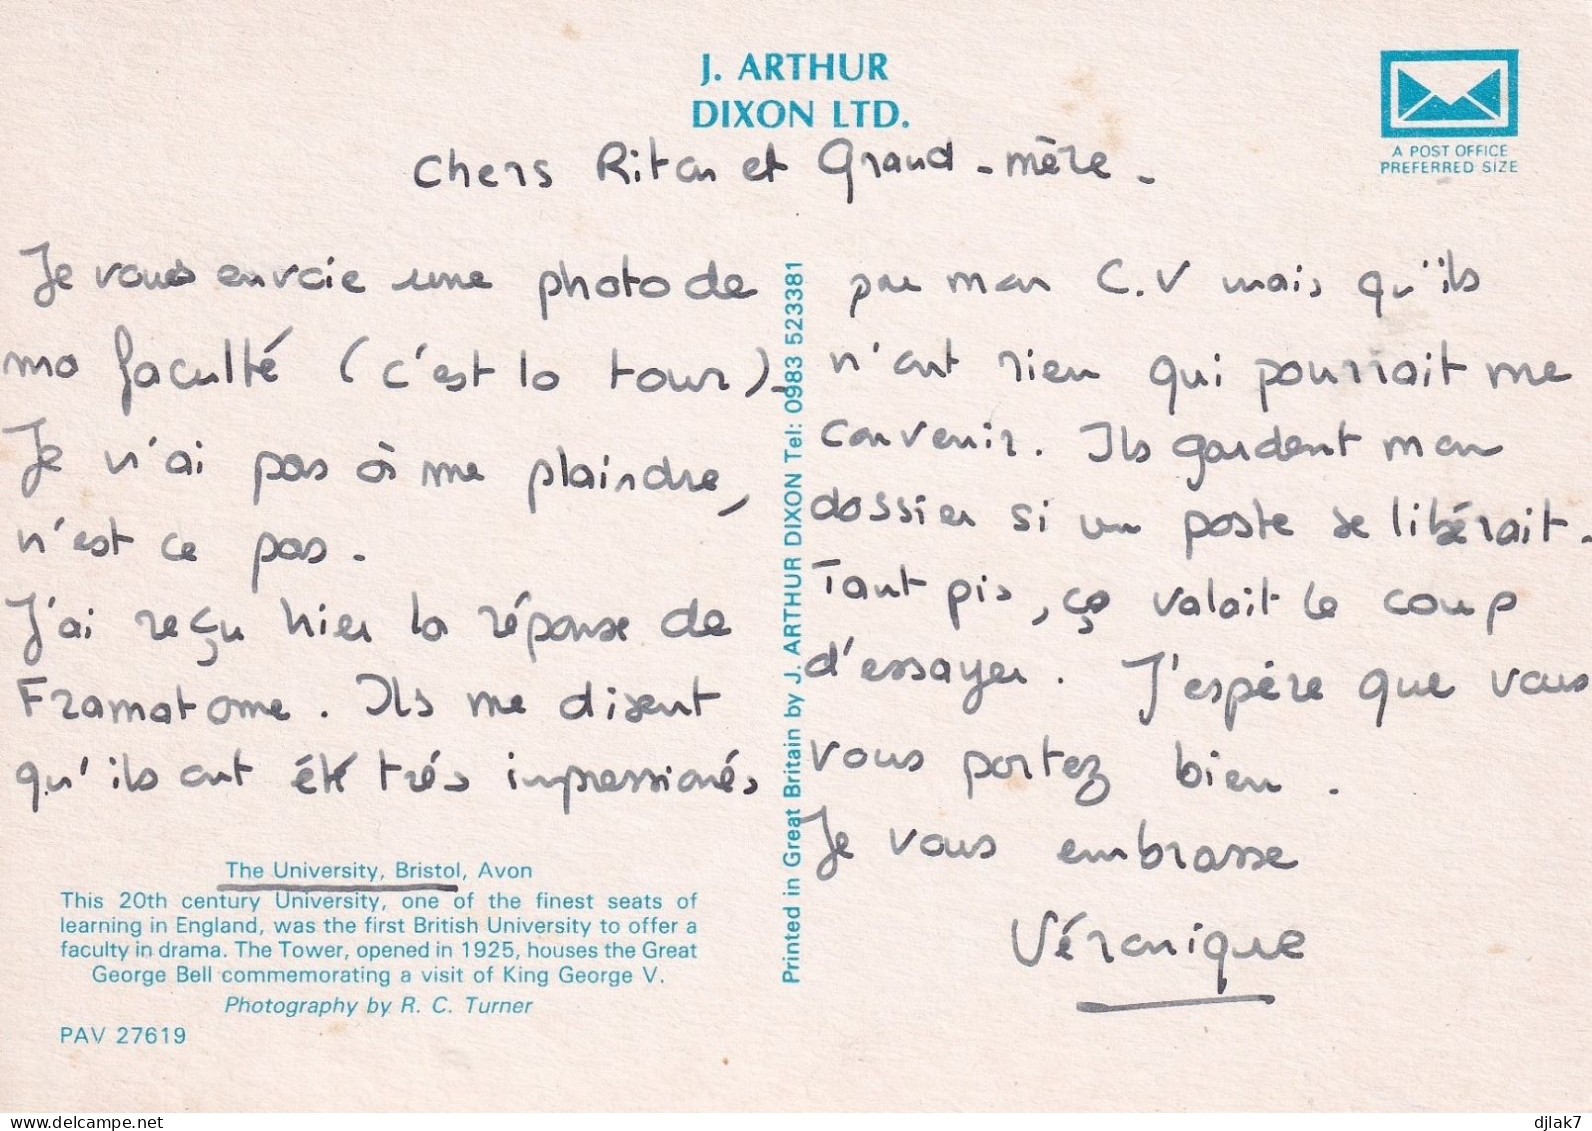 J. ARTHUR
DIXON LTD.
A POST OFFICE
PREFERRED SIZE
Chers Riton et Grand-mère.
Je vous envoie une photo de
ma faculté (c'est la tour).
Je n'ai pas à me plaindre,
n'est ce pas.
J'ai reçu hier la réponse de
Framatome. Ils me disent
qu'ils ont été très impressionés
par mon C.V mais qu'ils
n'ont rien qui pourrait me
convenir. Ils gardent mon
dossier si un poste se libérait.
Tant pis, ça valait le coup
d'essayer. J'espère que vous
vous portez bien.
Je vous embrasse
Véronique
Printed in Great Britain by J. ARTHUR DIXON Tel: 0983 523381
The University, Bristol, Avon
This 20th century University, one of the finest seats of
learning in England, was the first British University to offer a
faculty in drama. The Tower, opened in 1925, houses the Great
George Bell commemorating a visit of King George V.
Photography by R. C. Turner
PAV 27619
djlak7